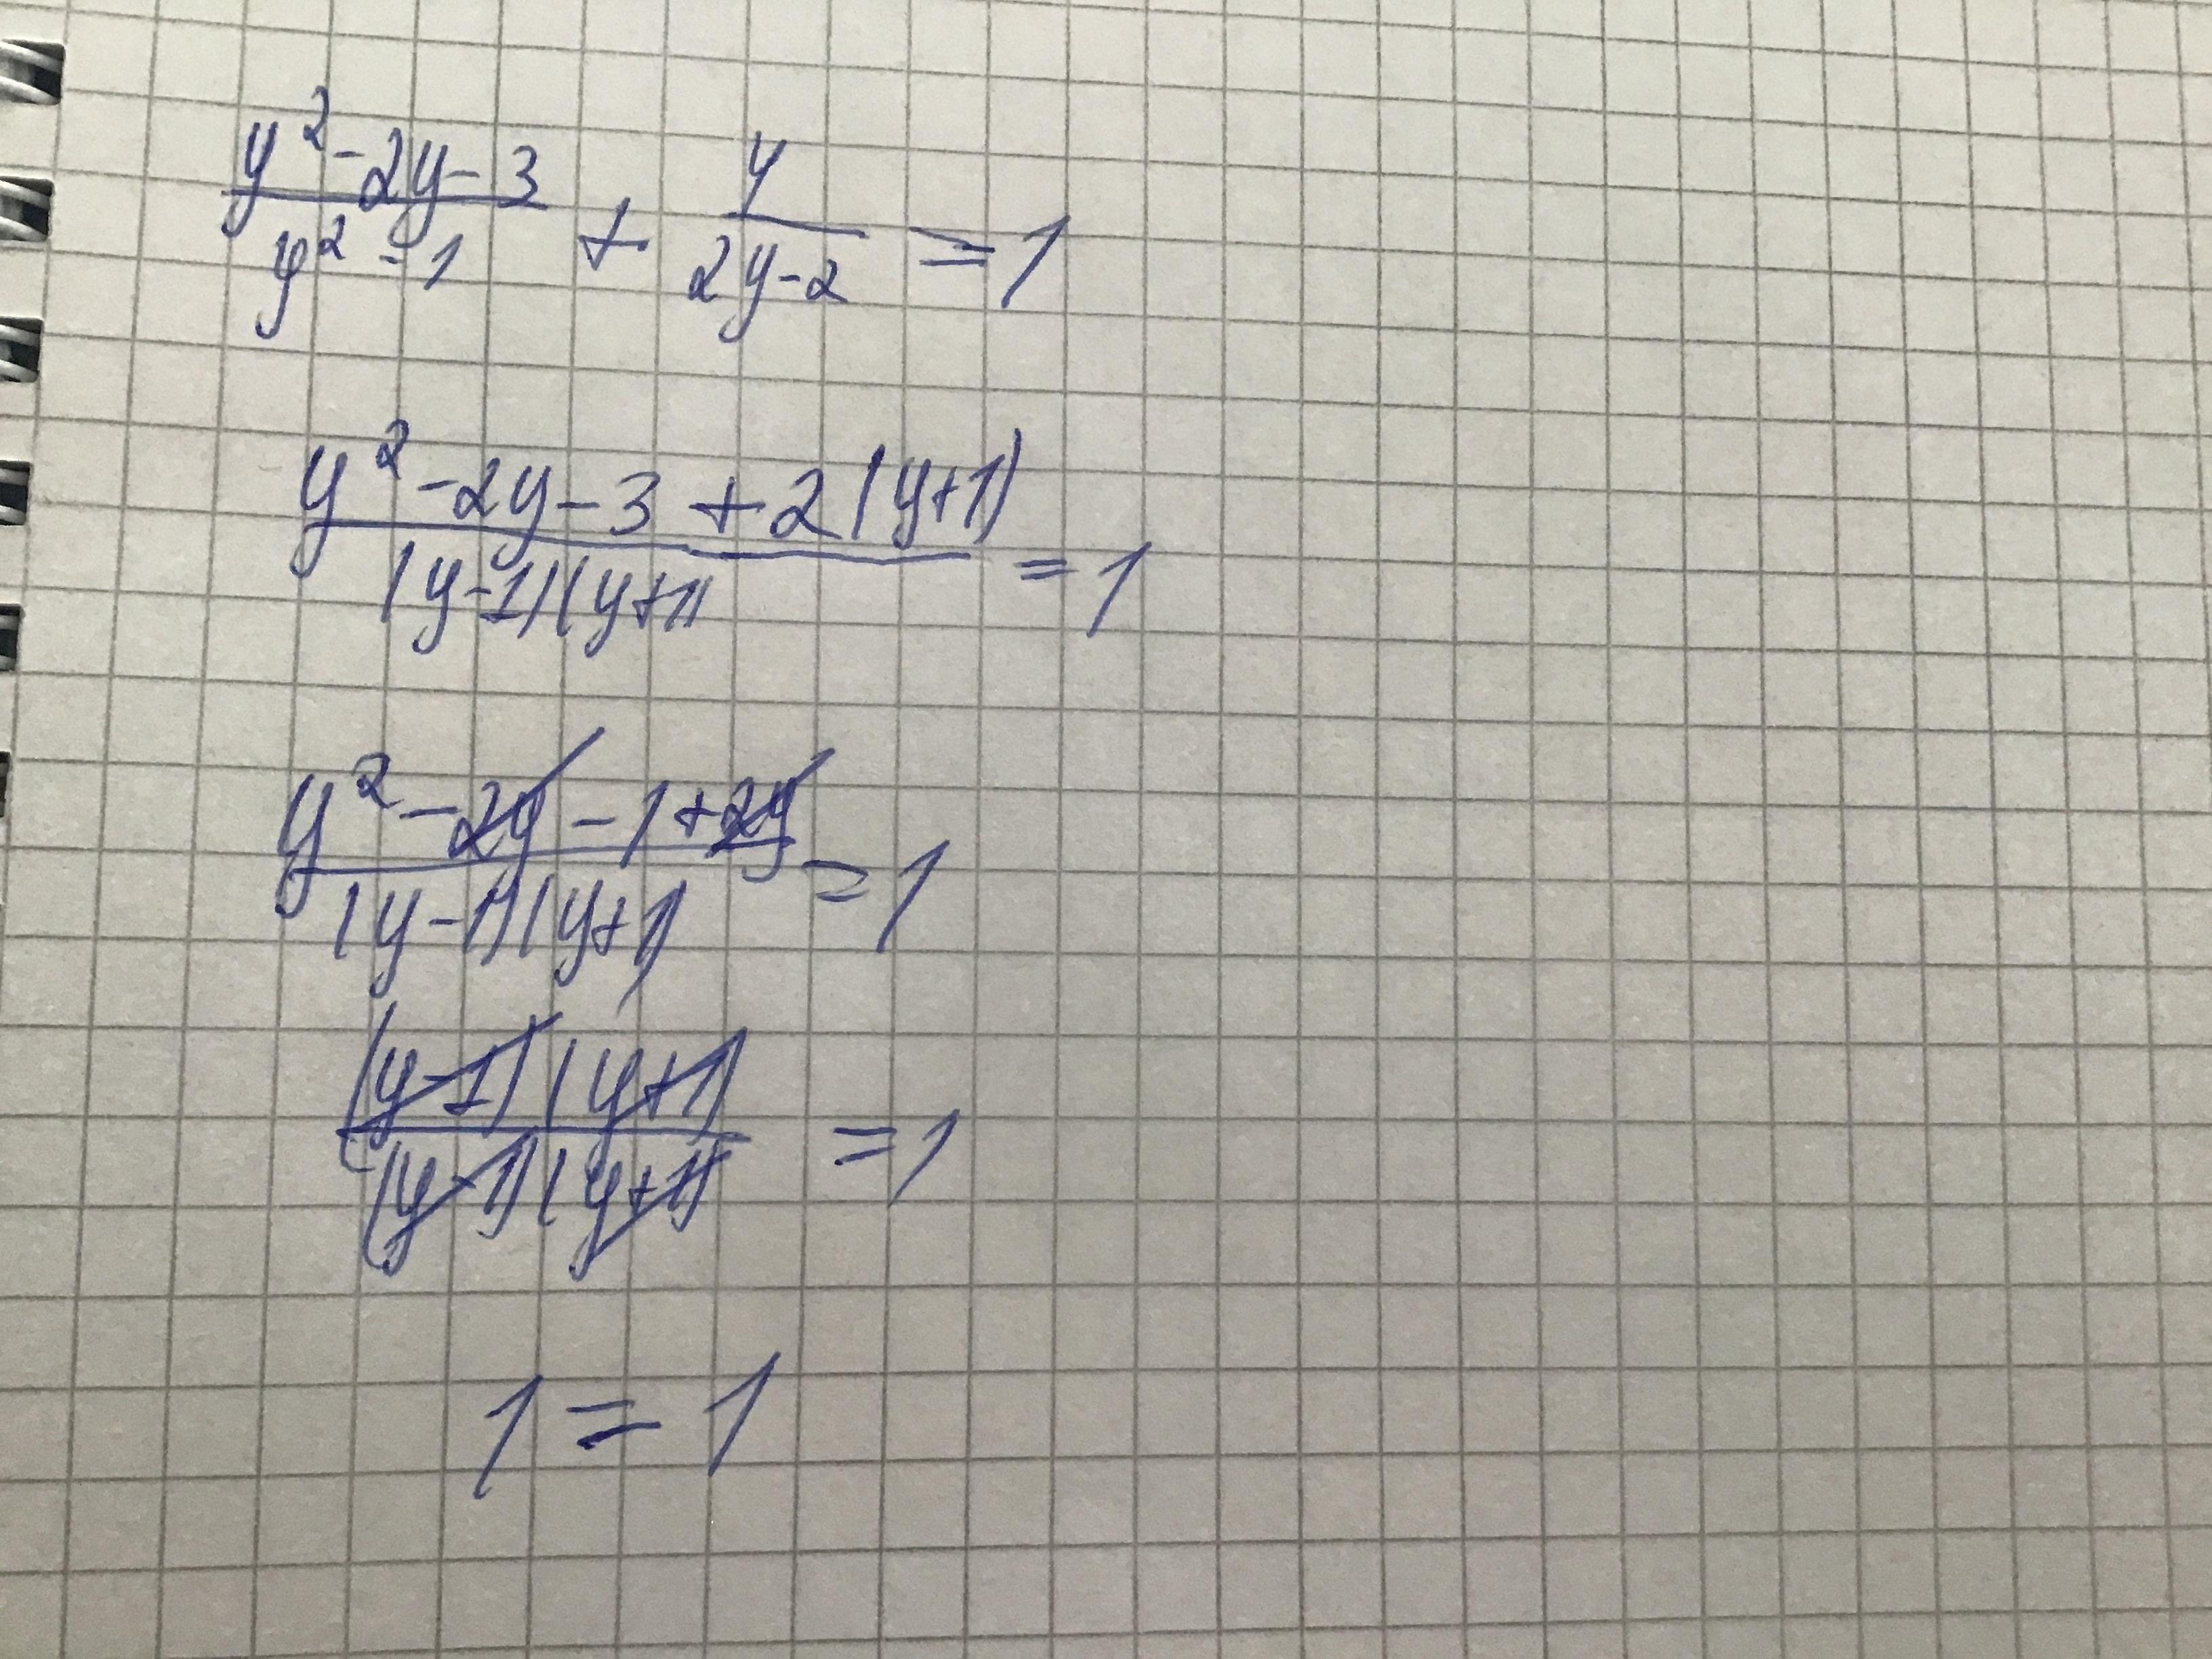 (y² - 2y - 3)/(y² - 1) + y/(2y - 2) = 1
(y² - 2y - 3 + 2(y+1))/((y-1)(y+1)) = 1
(y² - 2y - 1 + 2y)/((y-1)(y+1)) = 1
((y-1)(y+1))/((y-1)(y+1)) = 1
1 = 1